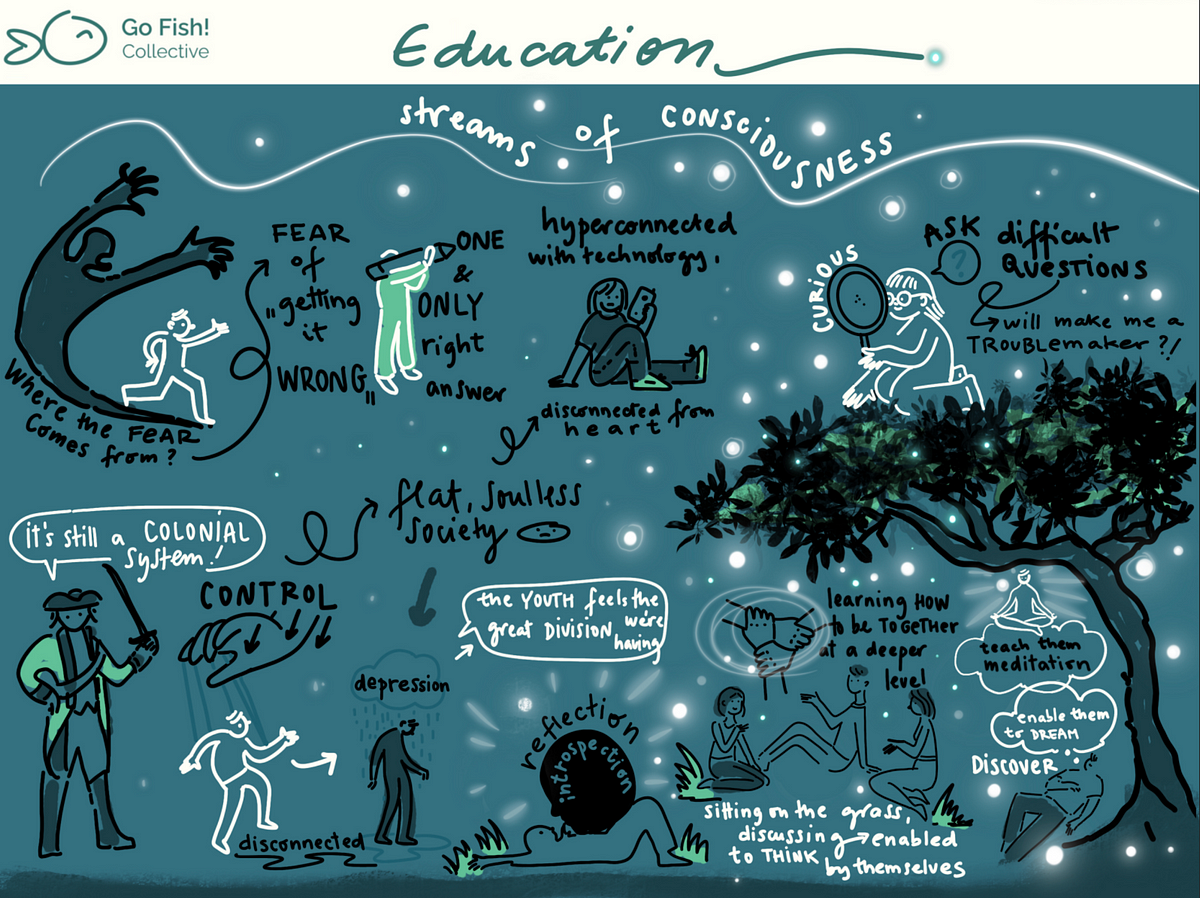 Go Fish!
Collective
Education
streams of CONSCIOUSNESS
Where the FEAR
Comes from?
FEAR
of
"getting
it
WRONG"
ONE
&
ONLY
right
answer
hyperconnected
with technology,
disconnected from
heart
CURIOUS
ASK difficult
?
QUESTIONS
will make me a
TROUBLEmaker ?!
flat, soulless
society
it's still a COLONIAL
system!
CONTROL
disconnected
depression
the YOUTH feels the
great DIVISION we're
having
reflection
introspection
learning HOW
to be TOGETHER
at a deeper
level
sitting on the grass,
discussing → enabled
to THINK by themselves
teach them
meditation
enable them
to DREAM
DISCOVER